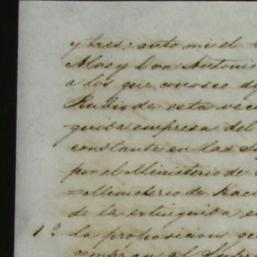 y tres: ante mi el
Mas y Don Antonio
a los que conozco d
Rubio de esta vec
guida empresa del
constante en las
por el Ministerio de
= Ministerio de Hac
de la extinguida e
1º la proposicion q
compran al